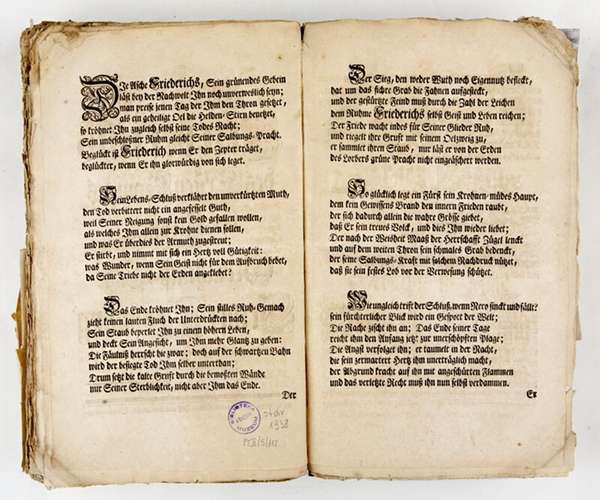 Die Asche Friederichs, Sein grünendes Gebein
läßt bey der Nachwelt Ihn noch unverweßlich seyn;
man preise jenen Tag der Ihm den Thron gesetzet,
als ein geheiligt Oel die Helden-Stirn benetzet,
so kröhnet Ihn zugleich selbst seine Todes Nacht;
Sein unbeschloßner Ruhm gleicht Seiner Salbungs-Pracht.
Beglückt ist Friederich wenn Er den Zepter träget,
beglückter, wenn Er ihn glorwürdig von sich leget.
Sein Lebens-Schluß verklährt den unverkürtzten Muth,
den Tod verbittert nicht ein angefesselt Guth,
weil Seiner Neigung sonst kein Gold gefallen wollen,
als welches Ihm allein zur Krohne dienen sollen,
und was Er überdies der Armuth zugestreut;
Er stirbt, und nimmt mit sich ein Hertz voll Gütigkeit:
was Wunder, wenn Sein Geist nicht für dem Aufbruch bebet,
da Seine Triebe nicht der Erden angeklebet?
Das Ende kröhnet Ihn; Sein stilles Ruh-Gemach
zieht keinen lauten Fluch der Unterdrückten nach;
Sein Staub beperlet Ihn zu einem höhern Leben,
und deckt Sein Angesicht, um Ihm mehr Glantz zu geben:
Die Fäulniß herrscht hie zwar; doch auf der schwartzen Bahn
wird der besiegte Tod Ihm selber unterthan;
Drum setzt die kalte Gruft durch die bemoßten Wände
nur Seiner Sterblichkeit, nicht aber Ihm das Ende.
Der
Star
1938
Der Sieg, den weder Wuth noch Eigennutz befleckt,
hat um das fichre Grab die Fahnen aufgesteckt,
und der gestürtzte Feind muß durch die Zahl der Leichen
dem Ruhme Friederichs selbst Geist und Leben reichen;
Der Friede wacht indes für Seiner Glieder Ruh,
und riegelt ihre Gruft mit seinem Oelzweig zu,
er sammlet ihren Staub, nur läst er von der Erden
des Lorbers grüne Pracht nicht eingeäschert werden.
So glücklich legt ein Fürst sein Krohnen-müdes Haupt,
dem kein Gewissens Brand den innern Frieden raubt,
der sich dadurch allein die wahre Grösse giebet,
daß Er sein treues Volck, und dies Ihn wieder liebet;
Der nach der Weisheit Maaß der Herrschafft Zügel lenckt
und auf dem weiten Thron sein schmales Grab bedencket,
der seine Salbungs-Kraft mit solchem Nachdruck nützet,
daß sie sein festes Lob vor der Verwesung schützet.
Wie ungleich trift der Schluß, wenn Nero sinckt und fällt?
sein fürchterlicher Blick wird ein Gespött der Welt;
Die Rache zischt ihn an; Das Ende seiner Tage
reicht ihm den Anfang jetz: zur unerschöpften Plage;
Die Angst verfolget ihn; er taumelt in der Nacht,
die sein zermartert Hertz ihm unerträglich macht,
der Abgrund kracht auf ihn mit angeschürten Flammen
und das verletzte Recht muß ihn nun selbst verdammen.
Er